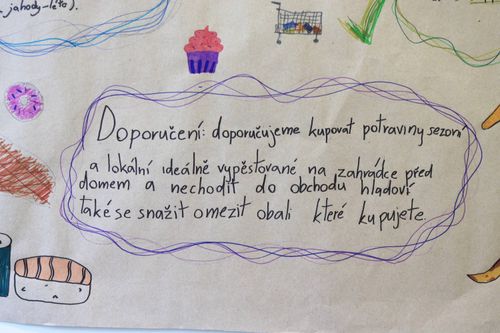 jahody-léto).
Doporučení: doporučujeme kupovat potraviny sezoní
a lokální ideálně vypěstované na zahrádce před
domem a nechodit do obchodu hladoví
také se snažit omezit obali které kupujete.